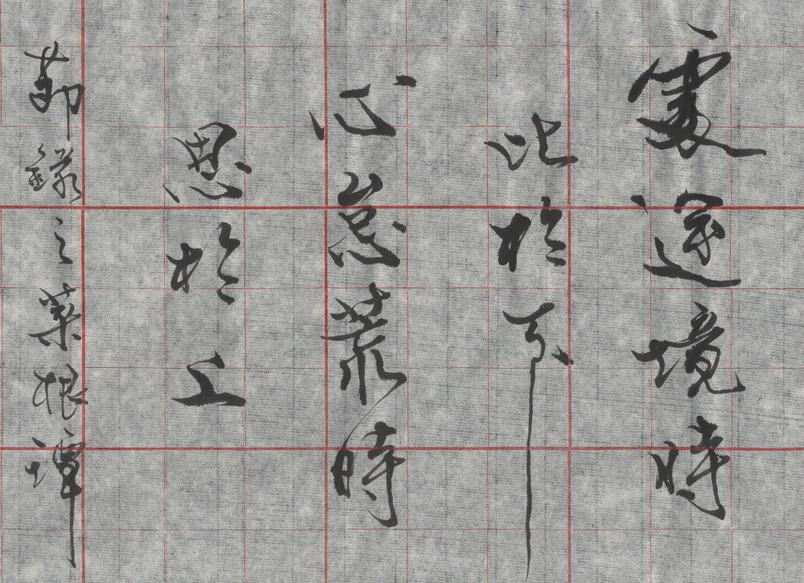 處逆境時
比於下
心怠荒時
思於上
節錄之菜根譚